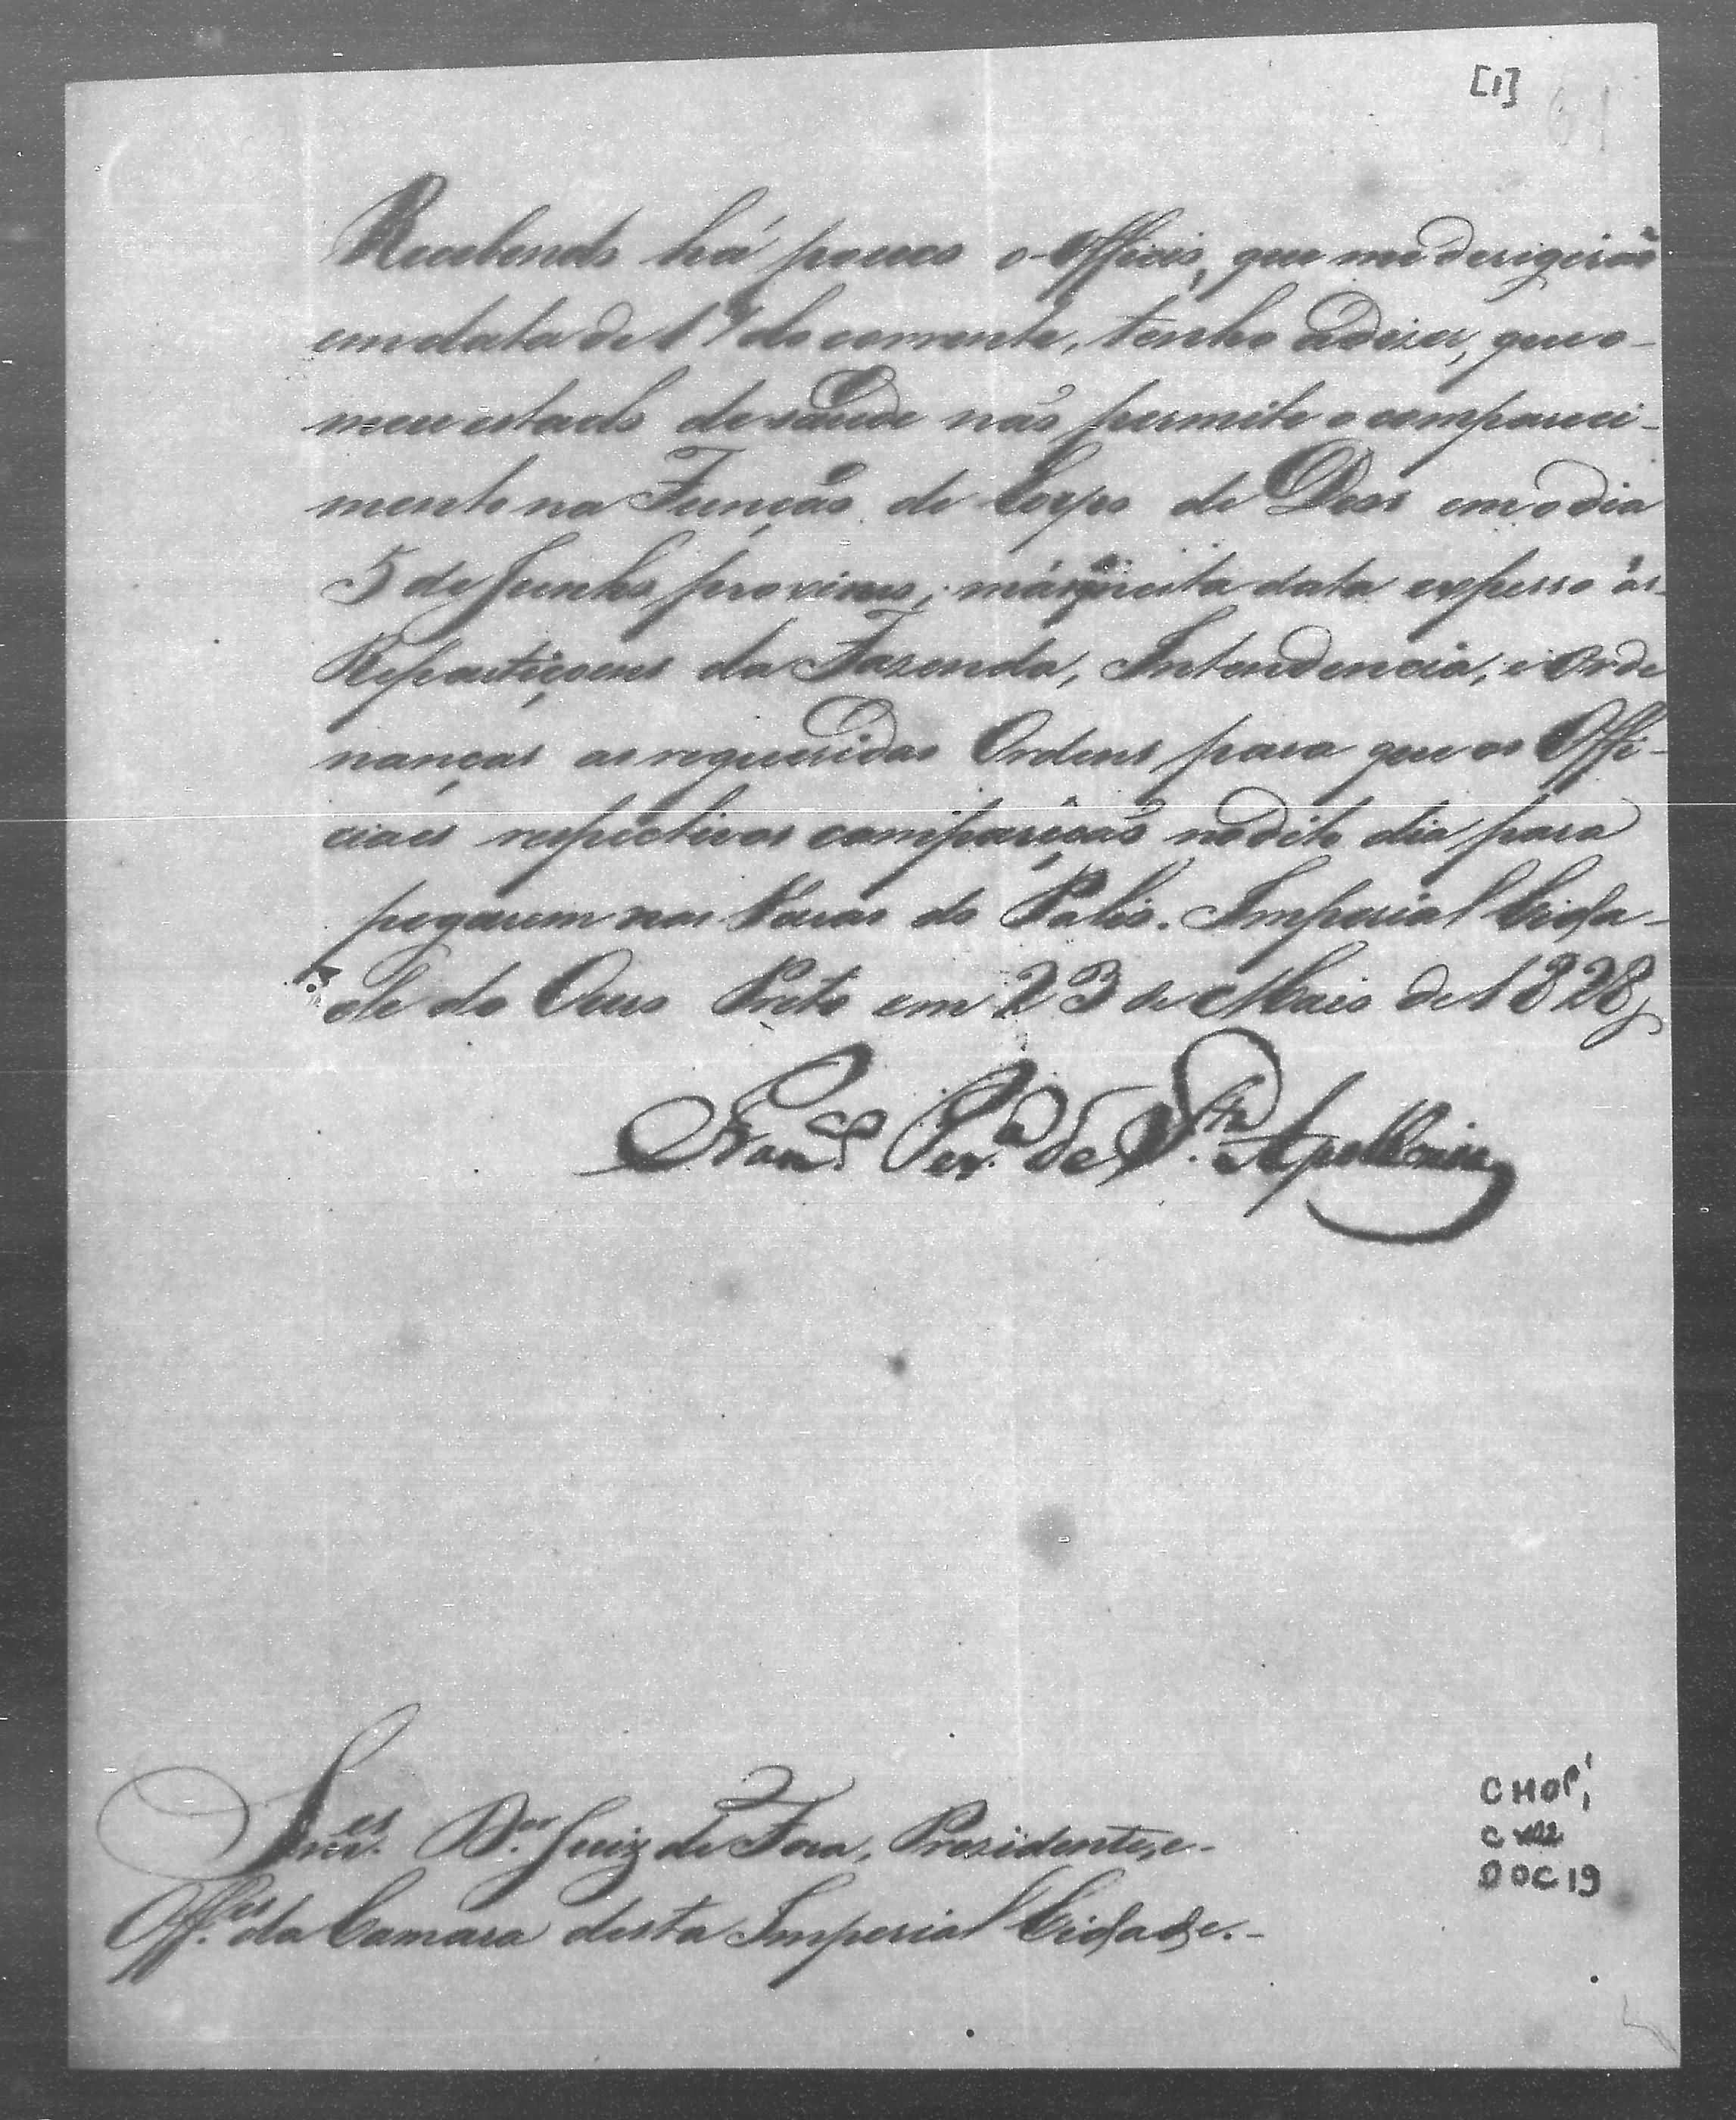 [1] 61
Recebendo há pouco o Officio, que me derigirão
em data de 17 do corrente, tenho a dizer, que o
meu estado de saude não permite o compareci-
mento na Função de Corpo de Deos em o dia
5 de Junho proximo; más n'esta data expesso ás
Repartiçoens da Fazenda, Intendencia, e Orde
nanças as requeridas Ordens para que os Offi-
ciaes respectivos compareção no dito dia para
pegarem nas Varas do Palio. Imperial Cida-
de do Ouro Preto em 23 de Maio de 1828
Franco. Pera. de Sta. Apollonia
Snres. Dor. Juiz de Fora, Presidente, e
Offes. da Camara desta Imperial Cidade.
CMOP,
DOC 19